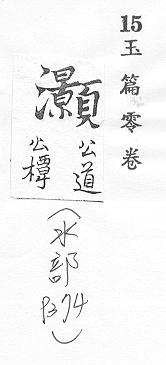 15玉篇零卷
灝
公道
公禫
(水部
P.374)